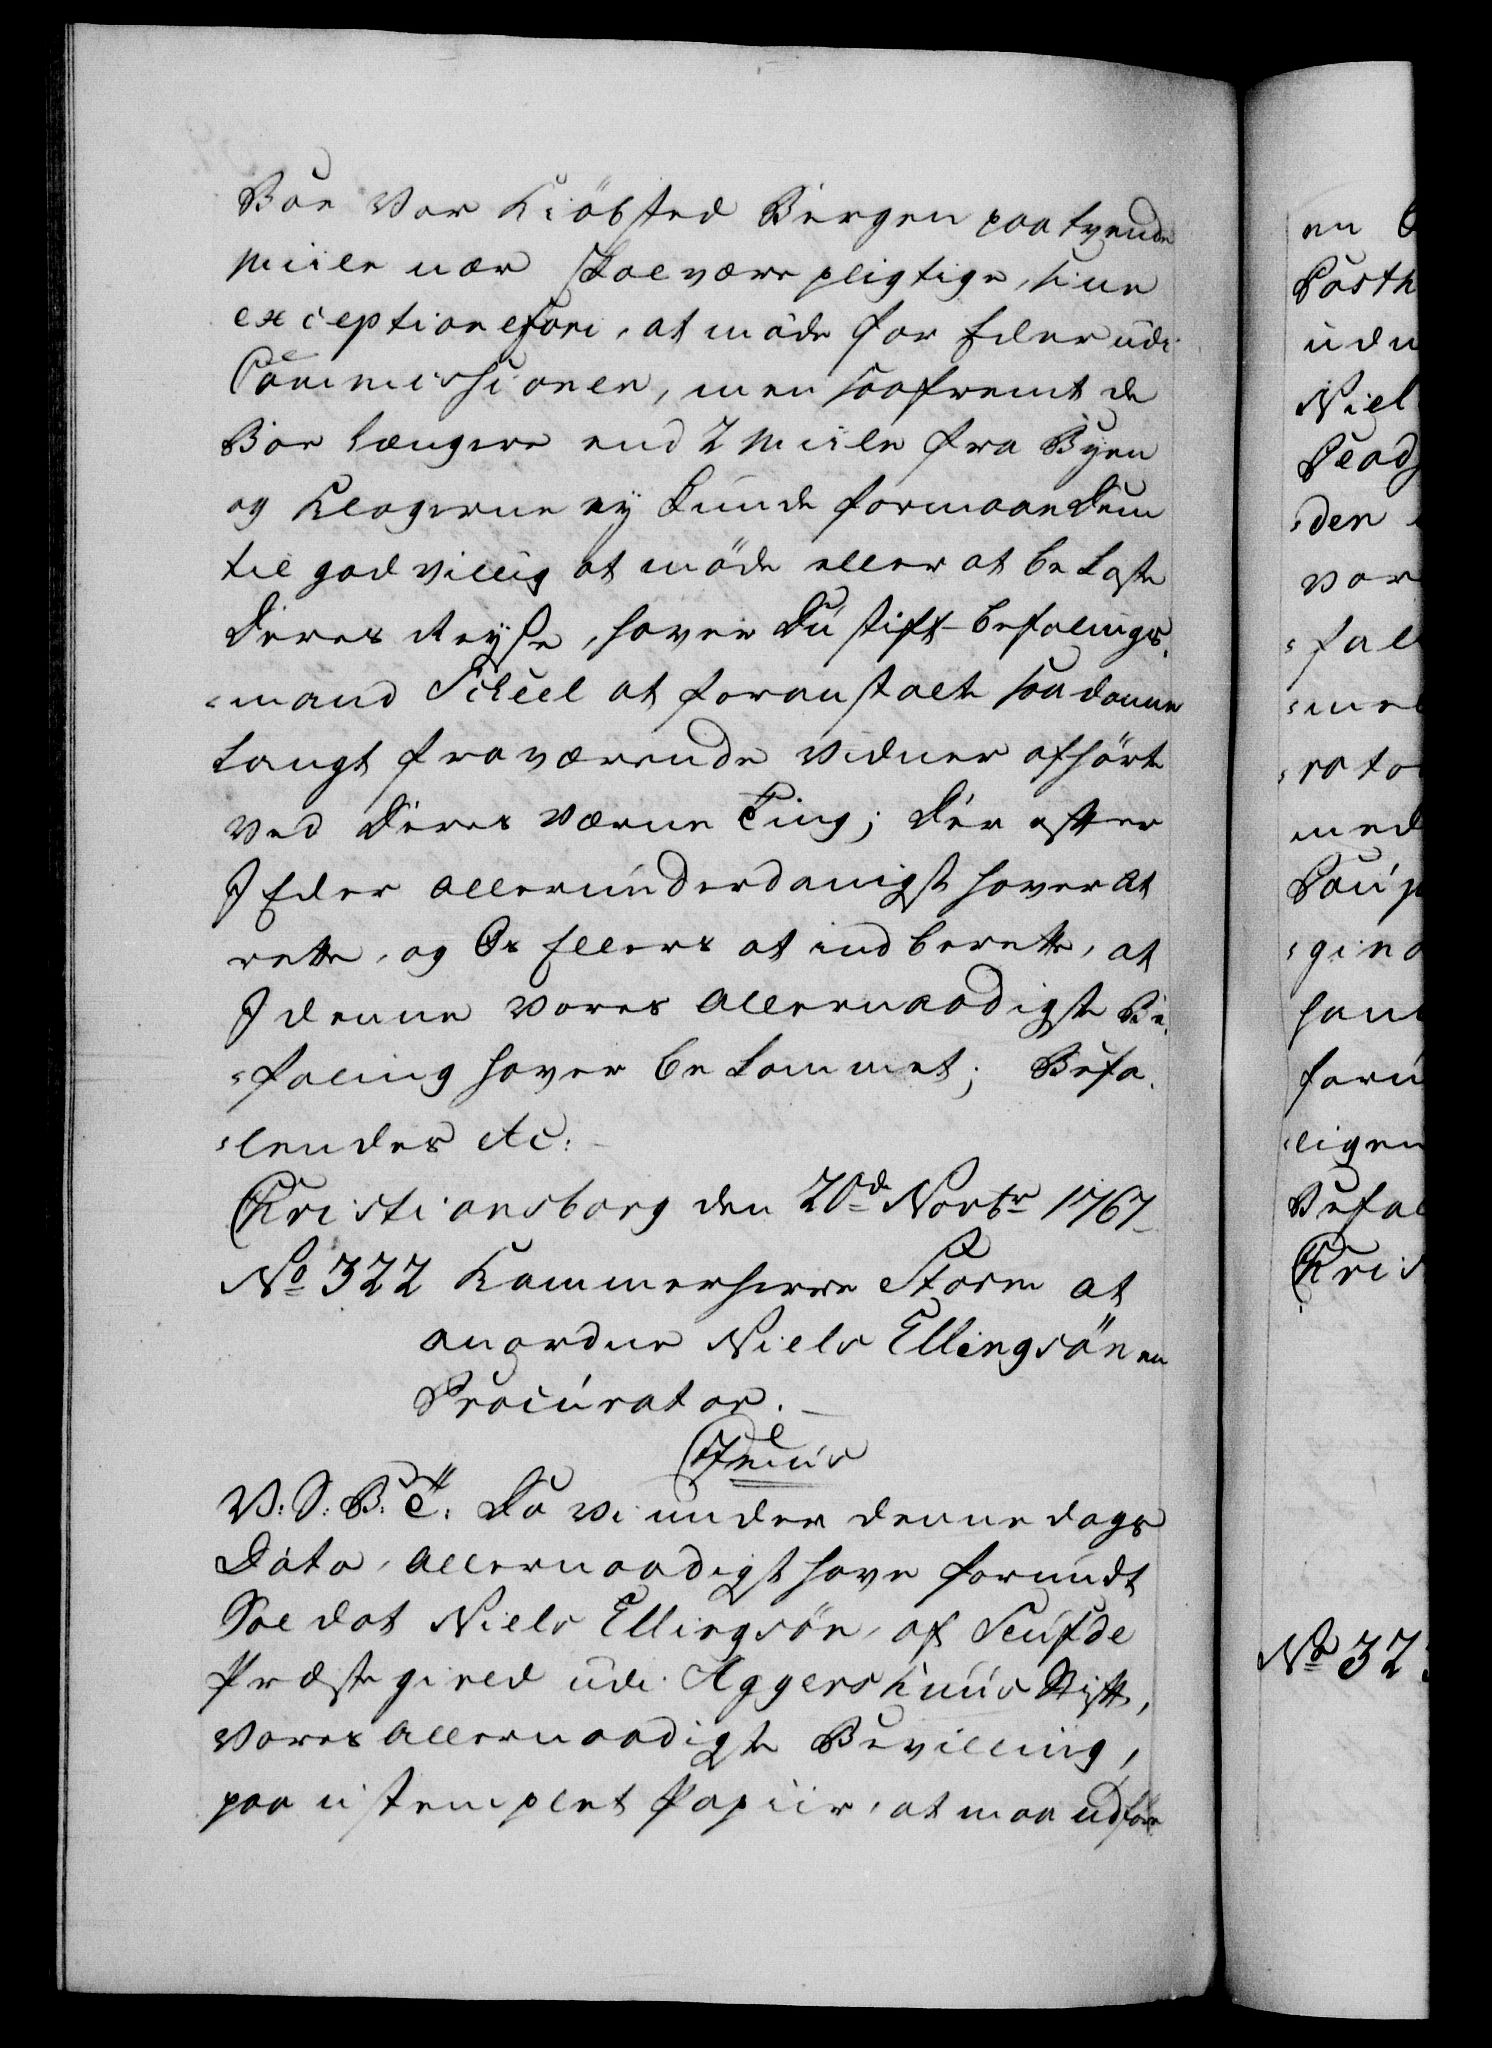 Boe vor Kiöbsted Bergen paa tvende
Miile nær skal være pligtige, sine
exceptione fori, at möde for Eder udi
Commissionen, men saafremt de
Boe længere end 2 Miile fra Byen
og Klagerne ey kunde formaae dem
til godvillig at möde eller at bekoste
deres Reyse, haver Du Stift-befalings-
-mand Scheel at foranstalte saadanne
langt fraværende Vidner afhört
ved deres Værne Ting; Der efter
I Eder allerunderdanigst haver at
rette, og Os Ellers at indberette, at
I denne Vores Allernaadigste Be-
-faling haver bekommet; Befa-
-lendes etc:
Christiansborg den 20de Novbr 1767
No 322 Kammerherre Storm at
anordne Niels Ellingsön en
Procurator.
C 7mus
V: S: B: T: Da vi under denne dags
Dato, Allernaadigst have forundt
Soldat Niels Ellingsön, af
Præstegield udi Aggershuus Stift,
vores allernaadigste Bevilling,
paa ustemplet Papiir, at maa udföre
en
Posth
udu
Niel
den
vor
-fal
-me
med
-gina
ham
foru
-ligen
Befal
Chris
No 32